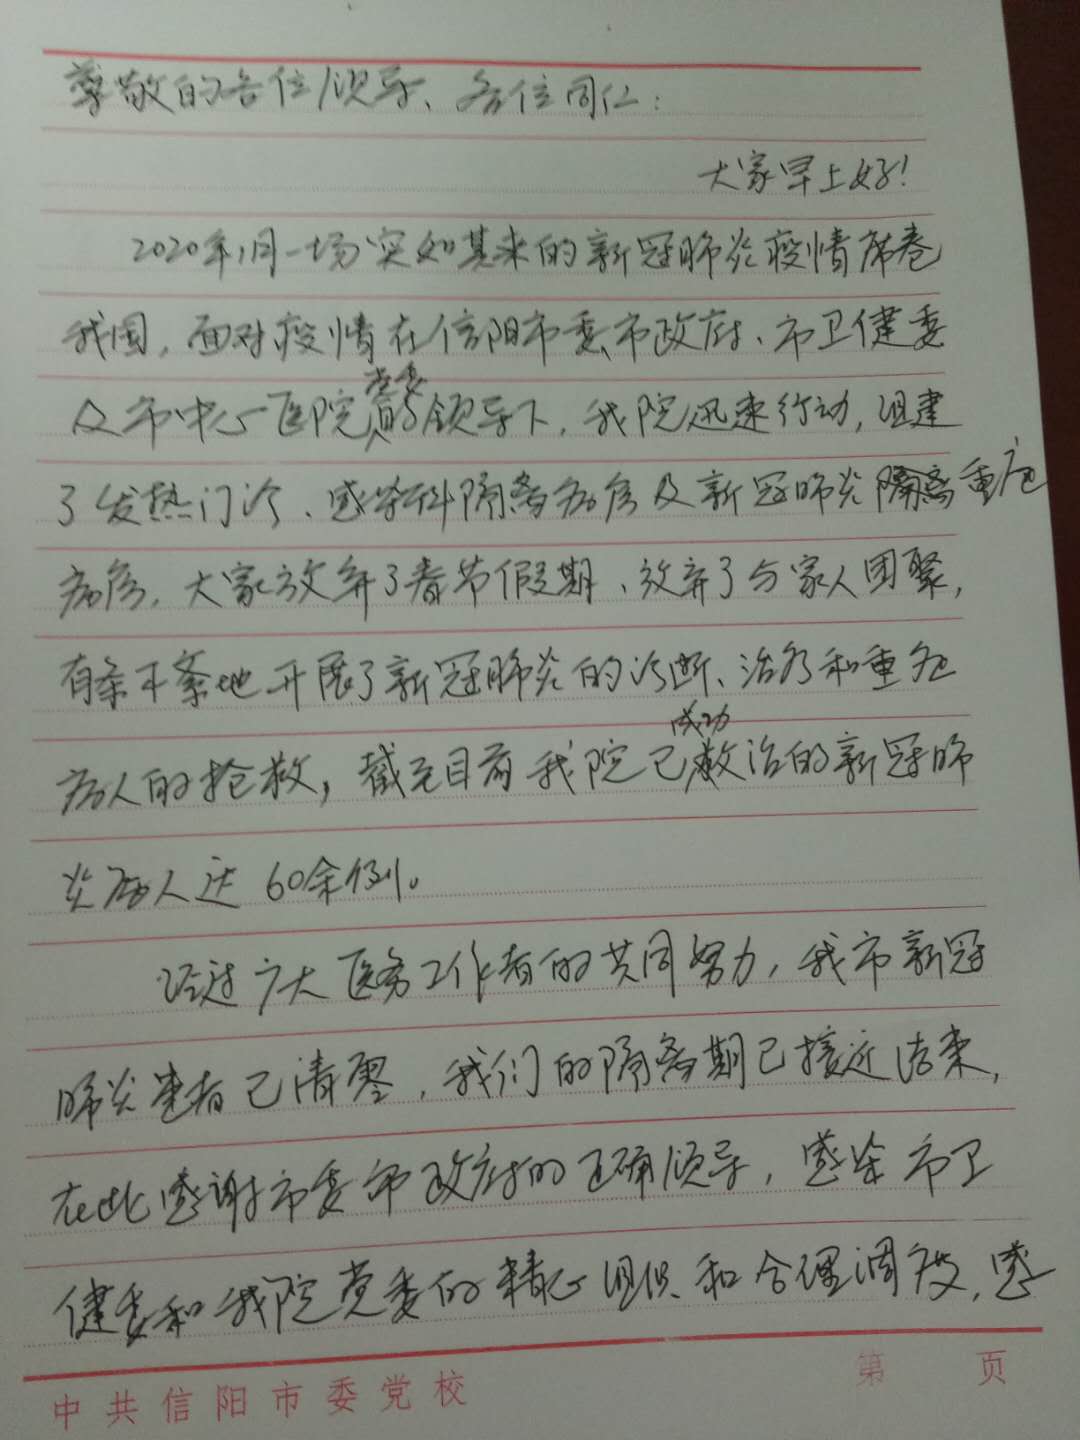 尊敬的各位领导、各位同仁：
大家早上好！
2020年1月一场突如其来的新冠肺炎疫情席卷
我国，面对疫情在信阳市委、市政府、市卫健委
及市中心医院党委的领导下，我院迅速行动，组建
了发热门诊、感染科隔离病房及新冠肺炎隔离重症
病房，大家放弃了春节假期、放弃了与家人团聚，
有条不紊地开展了新冠肺炎的诊断、治疗和重症
病人的抢救，截至目前我院已成功救治的新冠肺
炎病人达60余例。
经过广大医务工作者的共同努力，我市新冠
肺炎患者已清零，我们的隔离期已接近结束，
在此感谢市委市政府的正确领导，感谢市卫
健委和我院党委的精心组织和合理调度，感
中共信阳市委党校
第 页